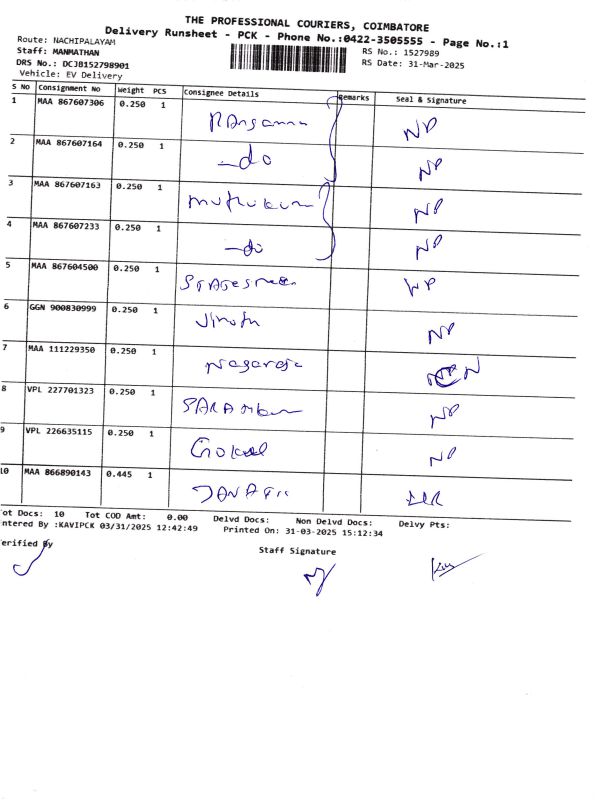 THE PROFESSIONAL COURIERS, COIMBATORE
Delivery Runsheet - PCK - Phone No.:0422-3505555 - Page No.:1
Route: NACHIPALAYAM
Staff: MANMATHAN RS No.: 1527989
DRS No.: DCJB152798901 RS Date: 31-Mar-2025
Vehicle: EV Delivery
S No Consignment No Weight PCS Consignee Details Remarks Seal & Signature
1 MAA 867607306 0.250 1 NP
2 MAA 867607164 0.250 1 -do NP
3 MAA 867607163 0.250 1 NP
4 MAA 867607233 0.250 1 -do NP
5 MAA 867604500 0.250 1 NP
6 GGN 900830999 0.250 1 NP
7 MAA 111229350 0.250 1 Nagaraja
8 VPL 227701323 0.250 1 NP
9 VPL 226635115 0.250 1 Gokul NP
10 MAA 866890143 0.445 1
ot Docs: 10 Tot COD Amt: 0.00 Delvd Docs: Non Delvd Docs: Delvy Pts:
ntered By :KAVIPCK 03/31/2025 12:42:49 Printed On: 31-03-2025 15:12:34
erified By
Staff Signature